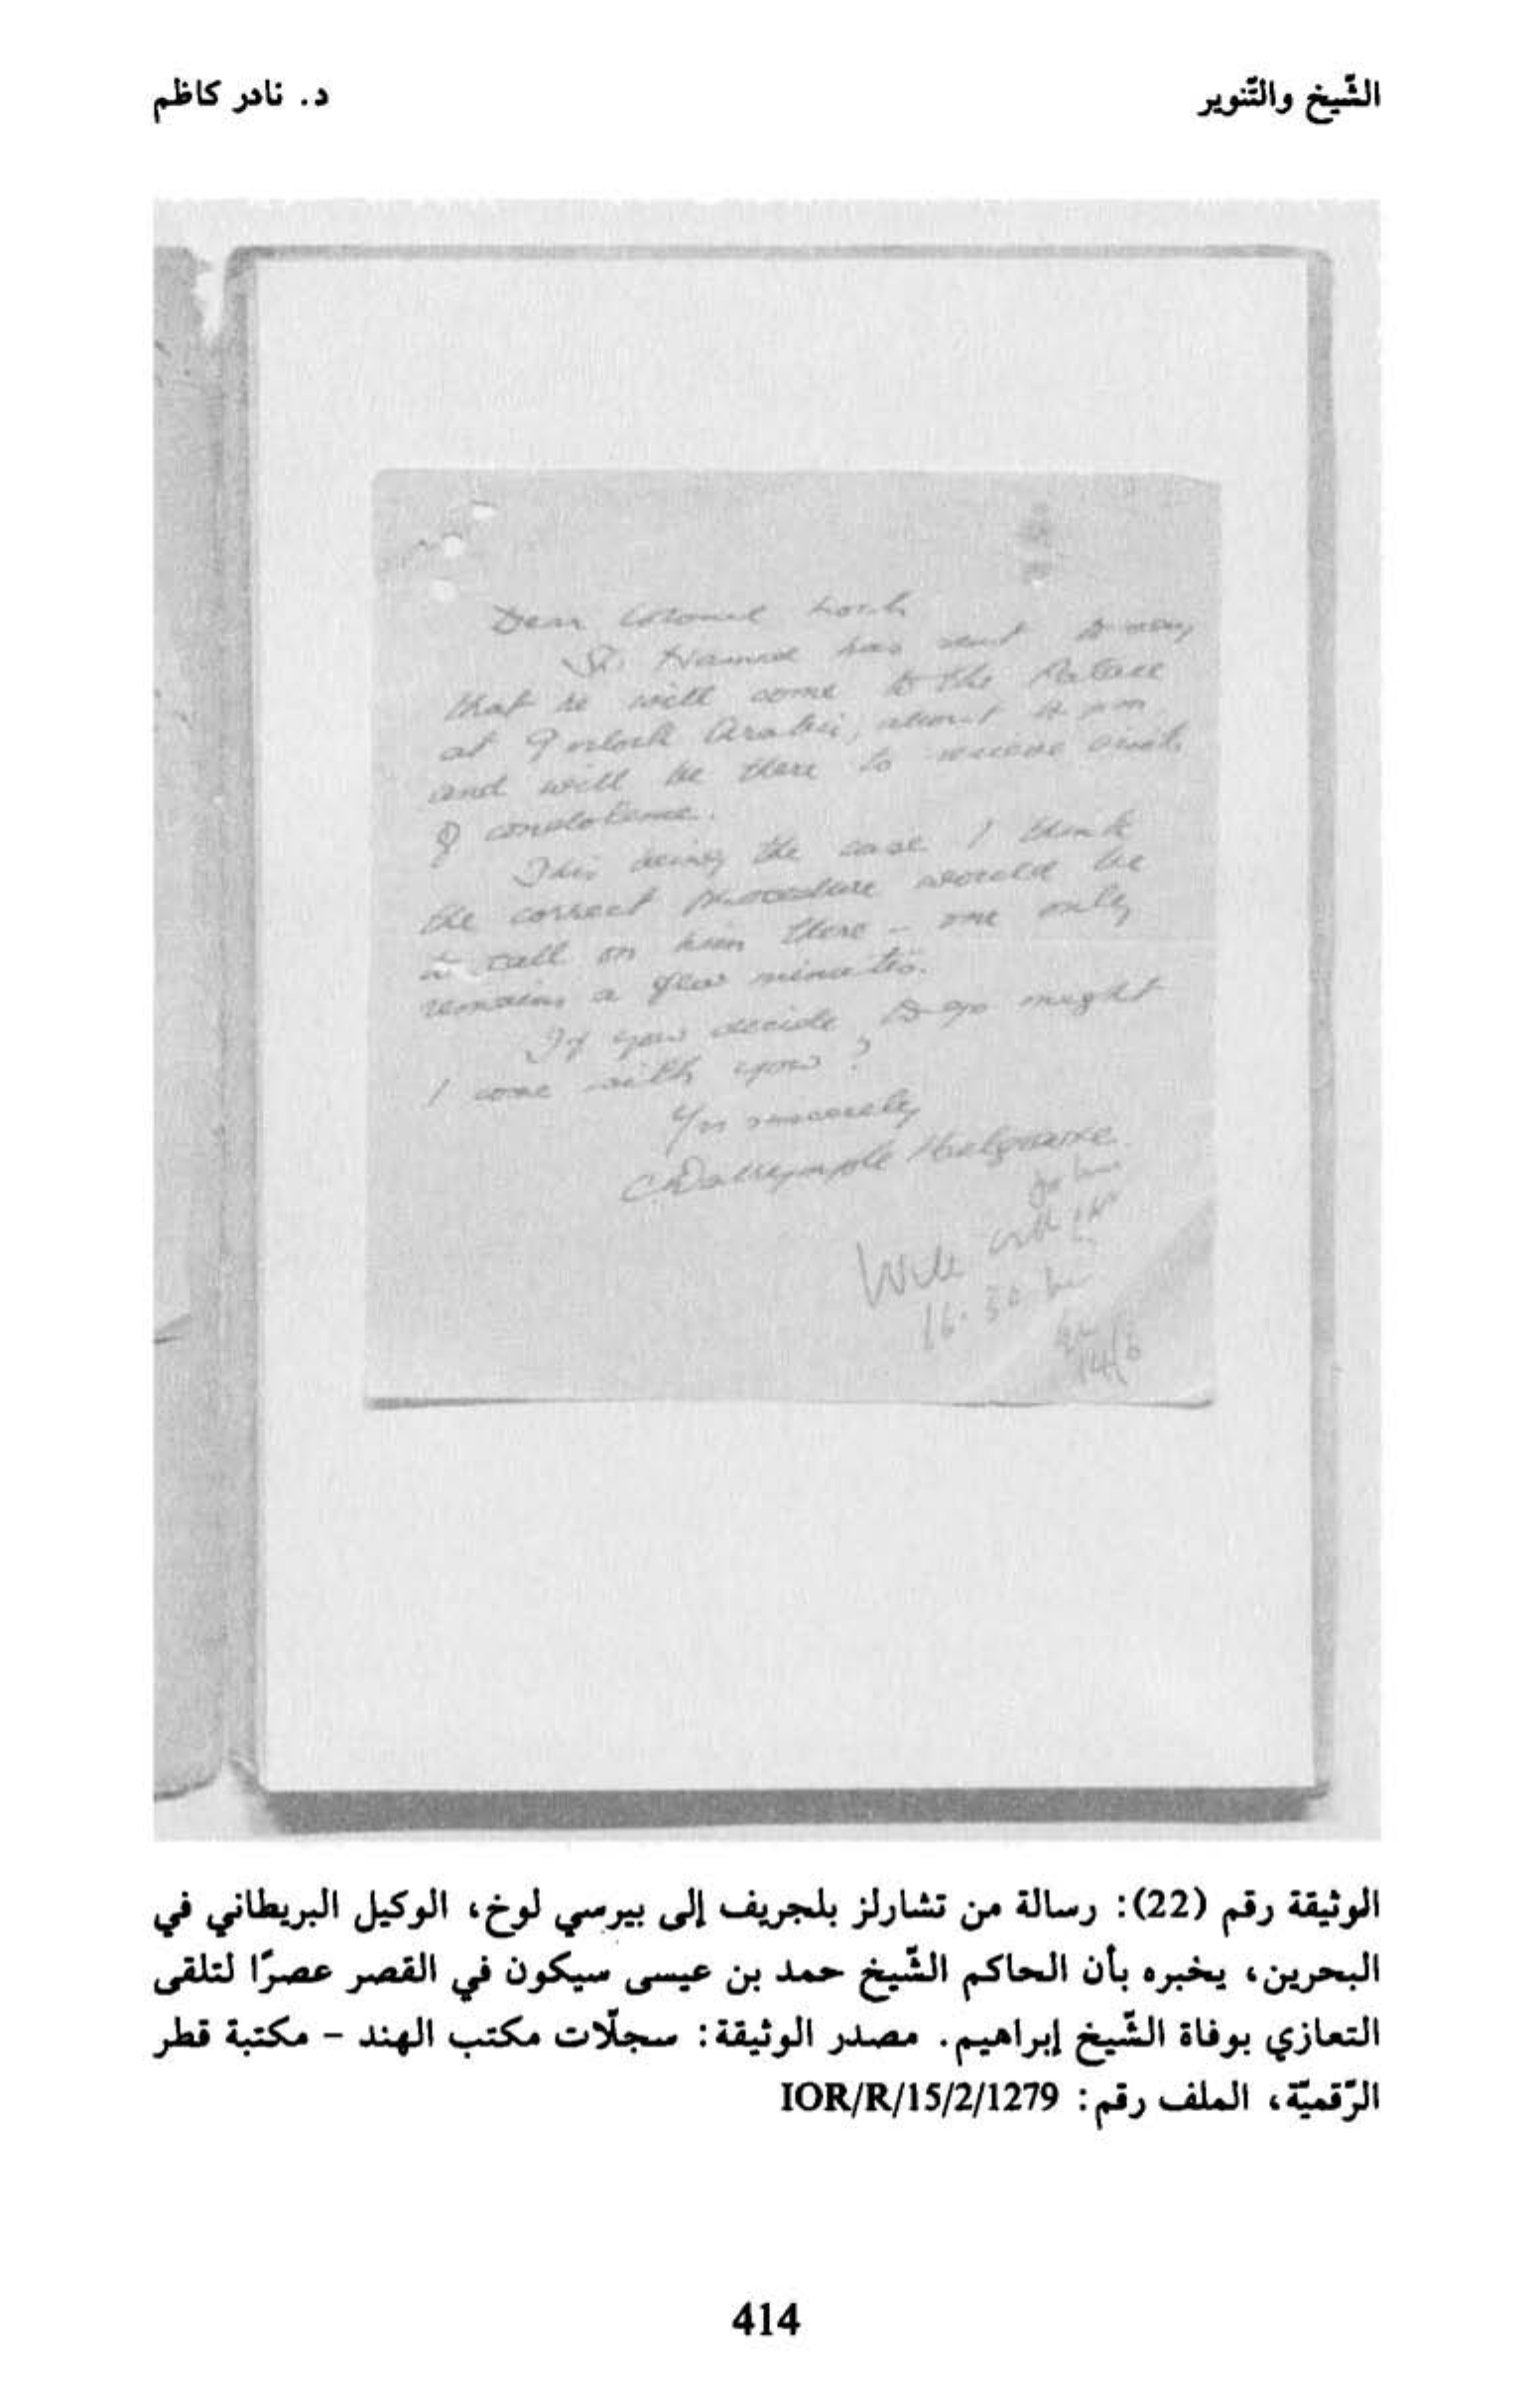 الشّيخ والتّنوير
د. نادر كاظم
Dear Colonel Loch
Sh. Hamed has sent to say
that he will come to the Palace
at 9 o'clock Arabic, about 4 pm
and will be there to receive visits
of condolence.
This being the case I think
the correct procedure would be
to call on him there – one only
remains a few minutes.
If you decide to go might
I come with you?
Yrs sincerely
CDalrymple Belgrave
Will call
16.30
14/6
الوثيقة رقم (22): رسالة من تشارلز بلجريف إلى بيرسي لوخ، الوكيل البريطاني في
البحرين، يخبره بأن الحاكم الشّيخ حمد بن عيسى سيكون في القصر عصرًا لتلقى
التعازي بوفاة الشّيخ إبراهيم. مصدر الوثيقة: سجلّات مكتب الهند - مكتبة قطر
الرّقميّة، الملف رقم: IOR/R/15/2/1279
414